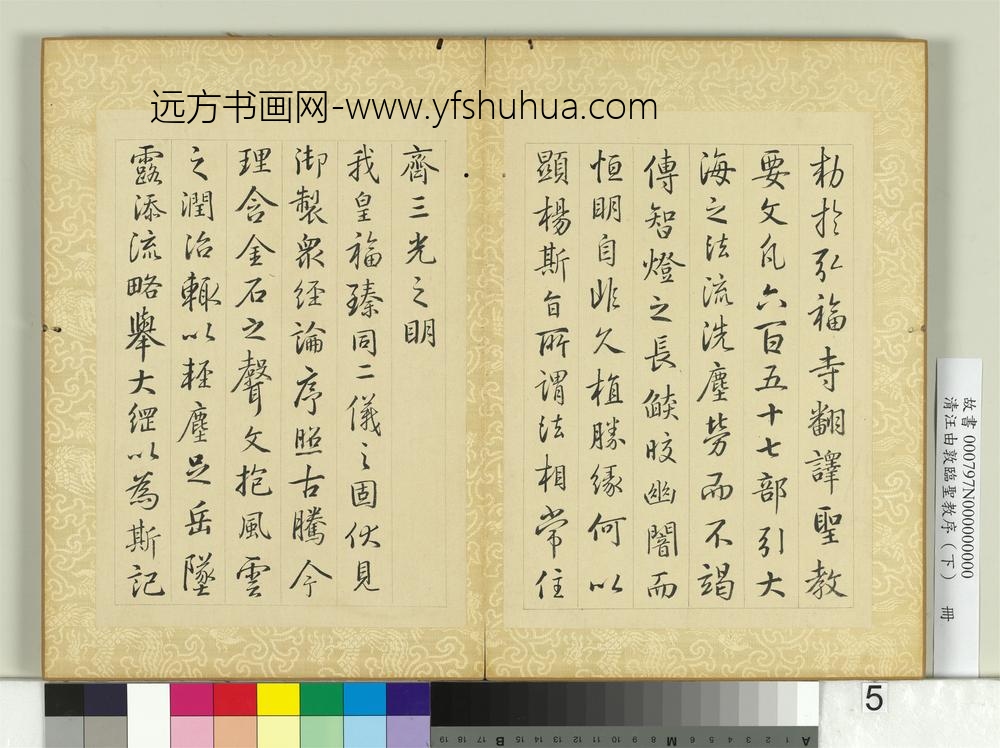 远方书画网-www.yfshuhua.com
勑於弘福寺翻譯聖教
要文凡六百五十七部引大
海之法流洗塵勞而不竭
傳智燈之長燄皎幽闇而
恒明自非久植勝緣何以
顯楊斯旨所謂法相常住
齊三光之明
我皇福臻同二儀之固伏見
御製衆經論序照古騰今
理含金石之聲文抱風雲
之潤治輙以輕塵足岳墜
露添流略舉大綱以為斯記
故書 000797N000000000
清汪由敦臨聖教序(下) 冊
5
19 18 17 16 15 14 13 12 11 10 9 8 7 6 5 4 3 2 1
B M A